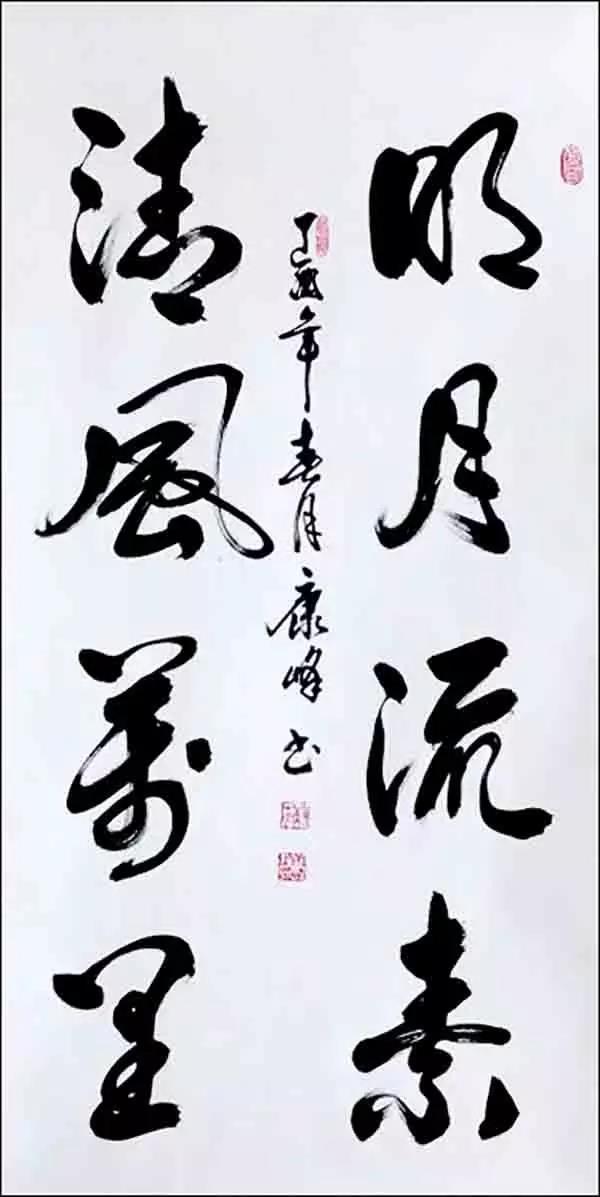 明月流素
清風萬里
丁酉年春月康峰书